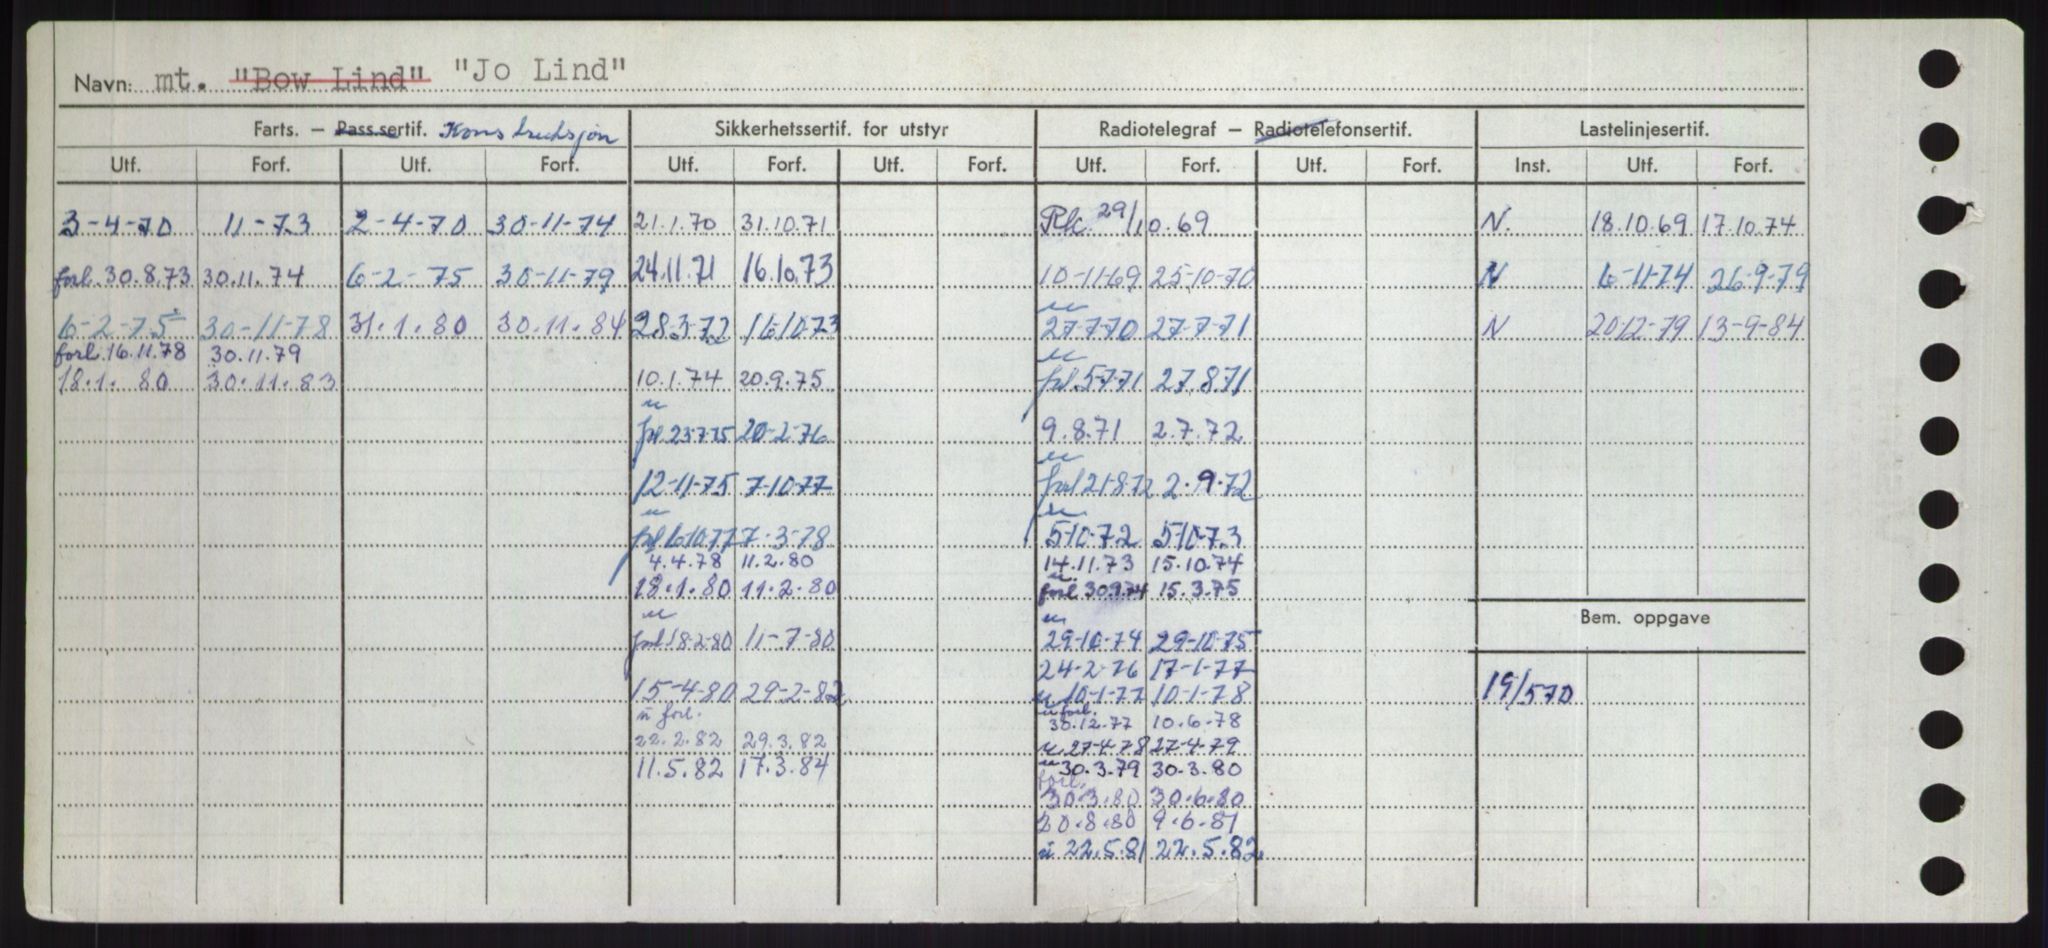 Navn: mt. "Bow Lind" "Jo Lind"
Farts. – Pass.sertif. Konstruksjon Sikkerhetssertif. for utstyr Radiotelegraf – Radiotelefonsertif. Lastelinjesertif.
Utf. Forf. Utf. Forf. Utf. Forf. Utf. Forf. Utf. Forf. Utf. Forf. Inst. Utf. Forf.
3-4-70 11-73 2-4-70 30-11-74 21.1.70 31.10.71 Rk. 29/10.69 N. 18.10.69 17.10.74
forl. 30.8.73 30.11.74 6-2-75 30-11-79 24.11.71 16.10.73 10-11-69 25-10-70 N 6-11-74 26-9-79
6-2-75 30-11-78 31.1.80 30.11.84 28-3-72 16.10.73 27-7-70 27-7-71 N 20-12-79 13-9-84
forl. 16.11.78 30.11.79
18.1.80 30.11.83 10.1.74 20.9.75 forl. 5-7-71 27.8.71
forl 23-7-75 20-2-76 9.8.71 2.7.72
12-11-75 7-10-77 forl 21-8-72 2.9.72
forl 6.10.77 7-3-78 5-10-72 5-10-73
4.4.78 11.2.80 14.11.73 15.10.74
18.1.80 11.2.80 forl 30.9.74 15.3.75
Bem. oppgave
forl 18-2-80 11-7-80 29-10-74 29-10-75
24-2-76 17-1-77
15-4-80 29-2-82 u 10-1-77 10-1-78 19/570
u forl. u forl.
30.12.77 10.6.78
22.2.82 29.3.82 u 27-4-78 27-4-79
11.5.82 17.3.84 u 30.3.79 30.3.80
forl.
30.3.80 30.6.80
20.8.80 9.6.81
u 22.5.81 22.5.82